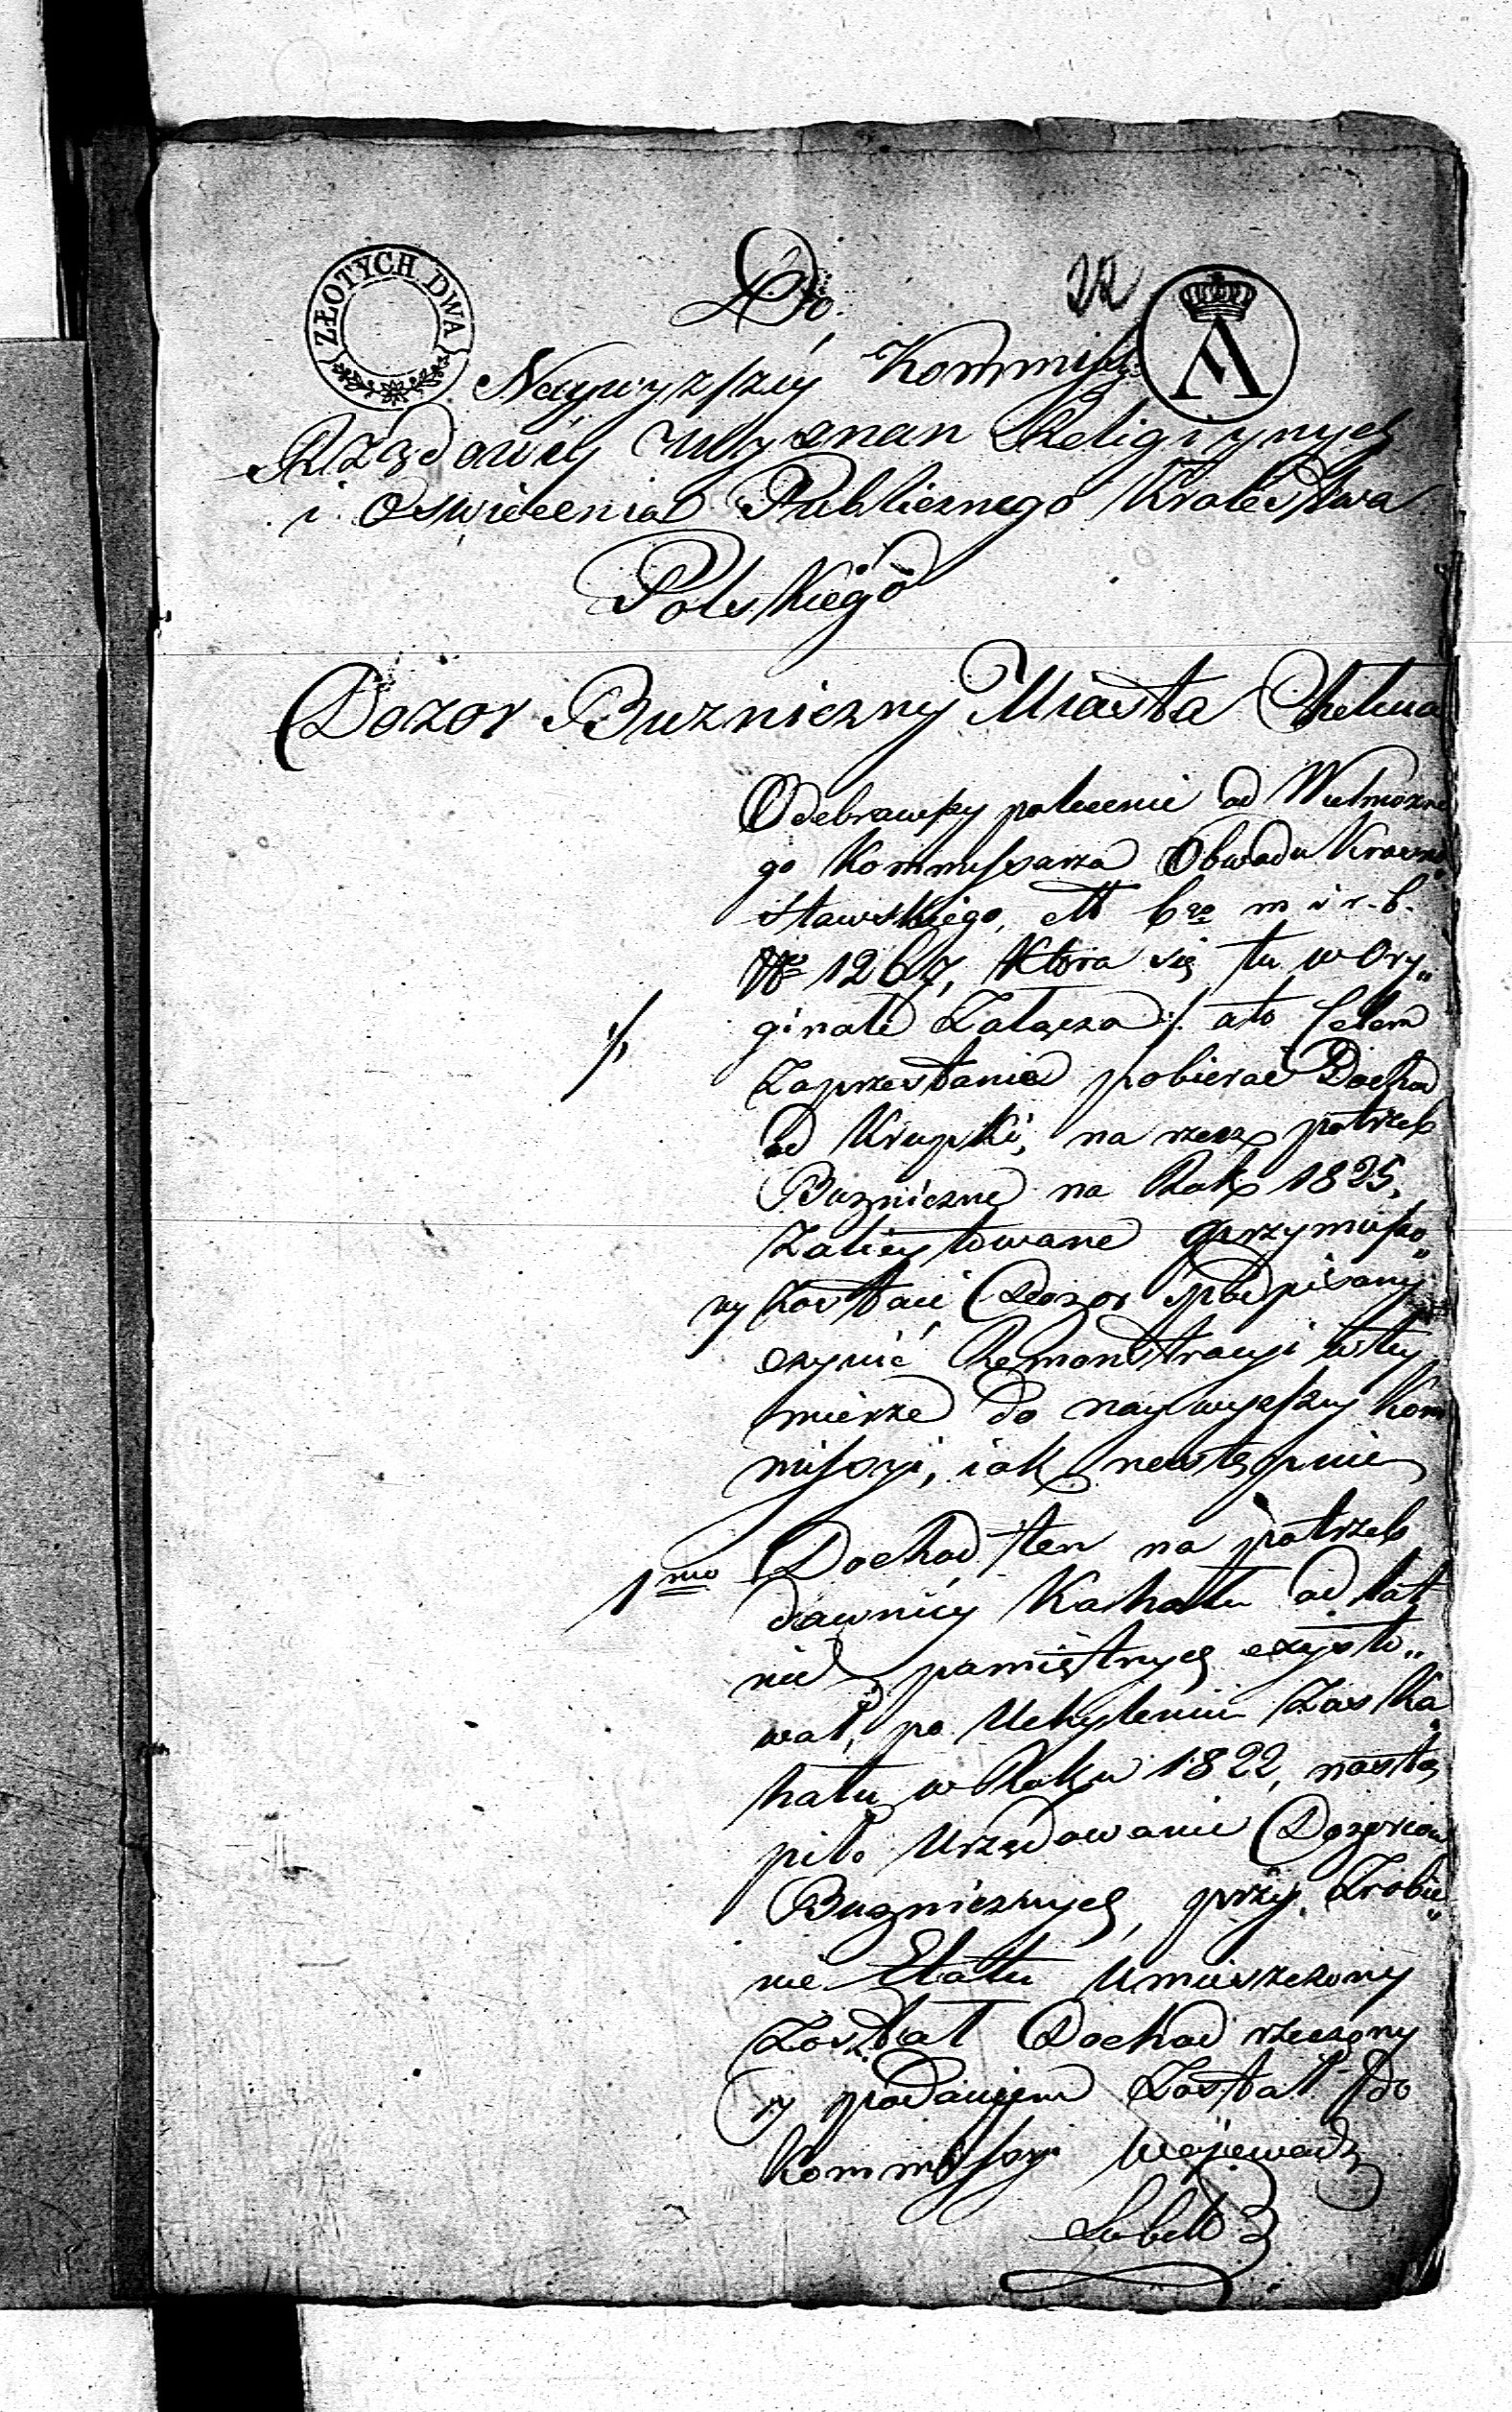 ZŁOTYCH DWA
Do
22
A
Naywyzszey Kommissyi
Rządowéy Wyznan Religiynych
i Oswiecenia Publicznego Krolestwa
Polskiego
Dozor Buzniczny Miasta Chelma
Odebrawszy polecenie od Wielmozne
go Kommissarza Obwodu Krasno
stawskiego, dtt 6go m i r. b.
No 1267, Ktora się tu w Ory„
ginale Załącza ·/. ato Celem
·/.
Zaprzestania pobierać Dochod
od Krupki, na rzecz potrzeb
Buzniczne na Rok 1825,
Zalicytowane przymuszo„
ny Zostaie Dozor podpisany
czynić Remonstracyi w tey
mierze do naywyzszey Kom
missyi, iak nastęspnie
1mo Dochod ten na potrzeb
dawniey Kahału od lat
nie pamiętnych exysto„
wał, po Uchyleniu Zas Ka„
hału w Roku 1822, nastą
pił. Urzędowanie Dozorcow
Buznicznych, przy Zrobie„
nie Etatu Umieszczony
Zostiał Dochod rzeczony
y podaniem Został do
Kommissyi Wojewodz
Lubelt